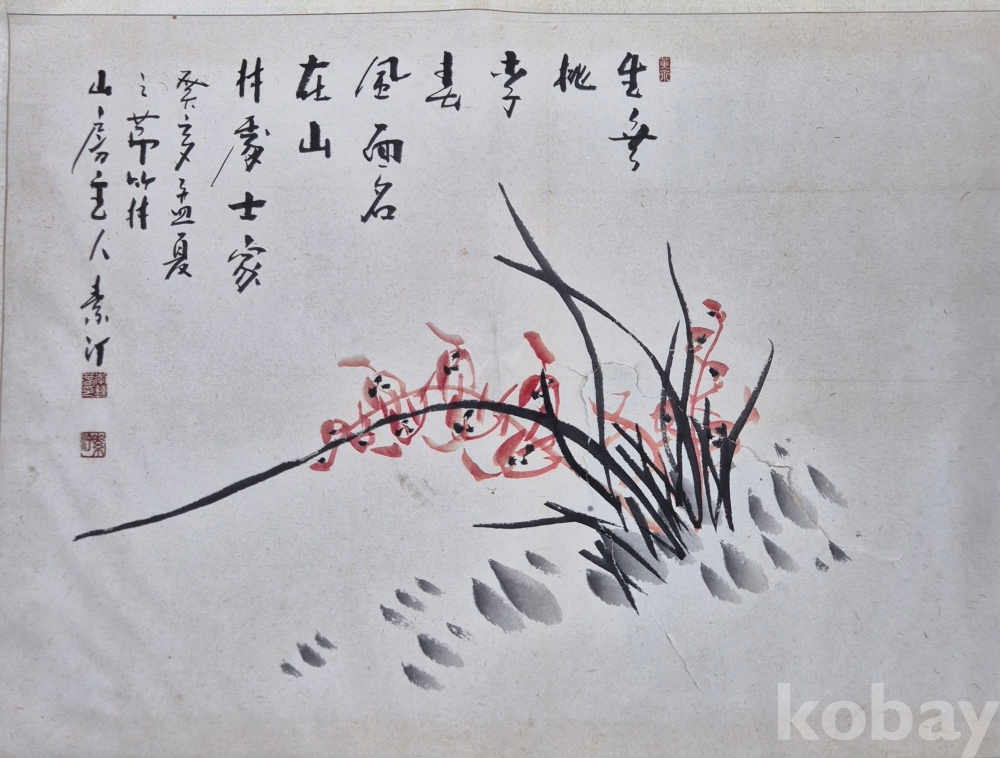 生無
桃
李
春
風面名
在山
林處士家
癸亥孟夏
之節竹林
山房主人素汀
kobay